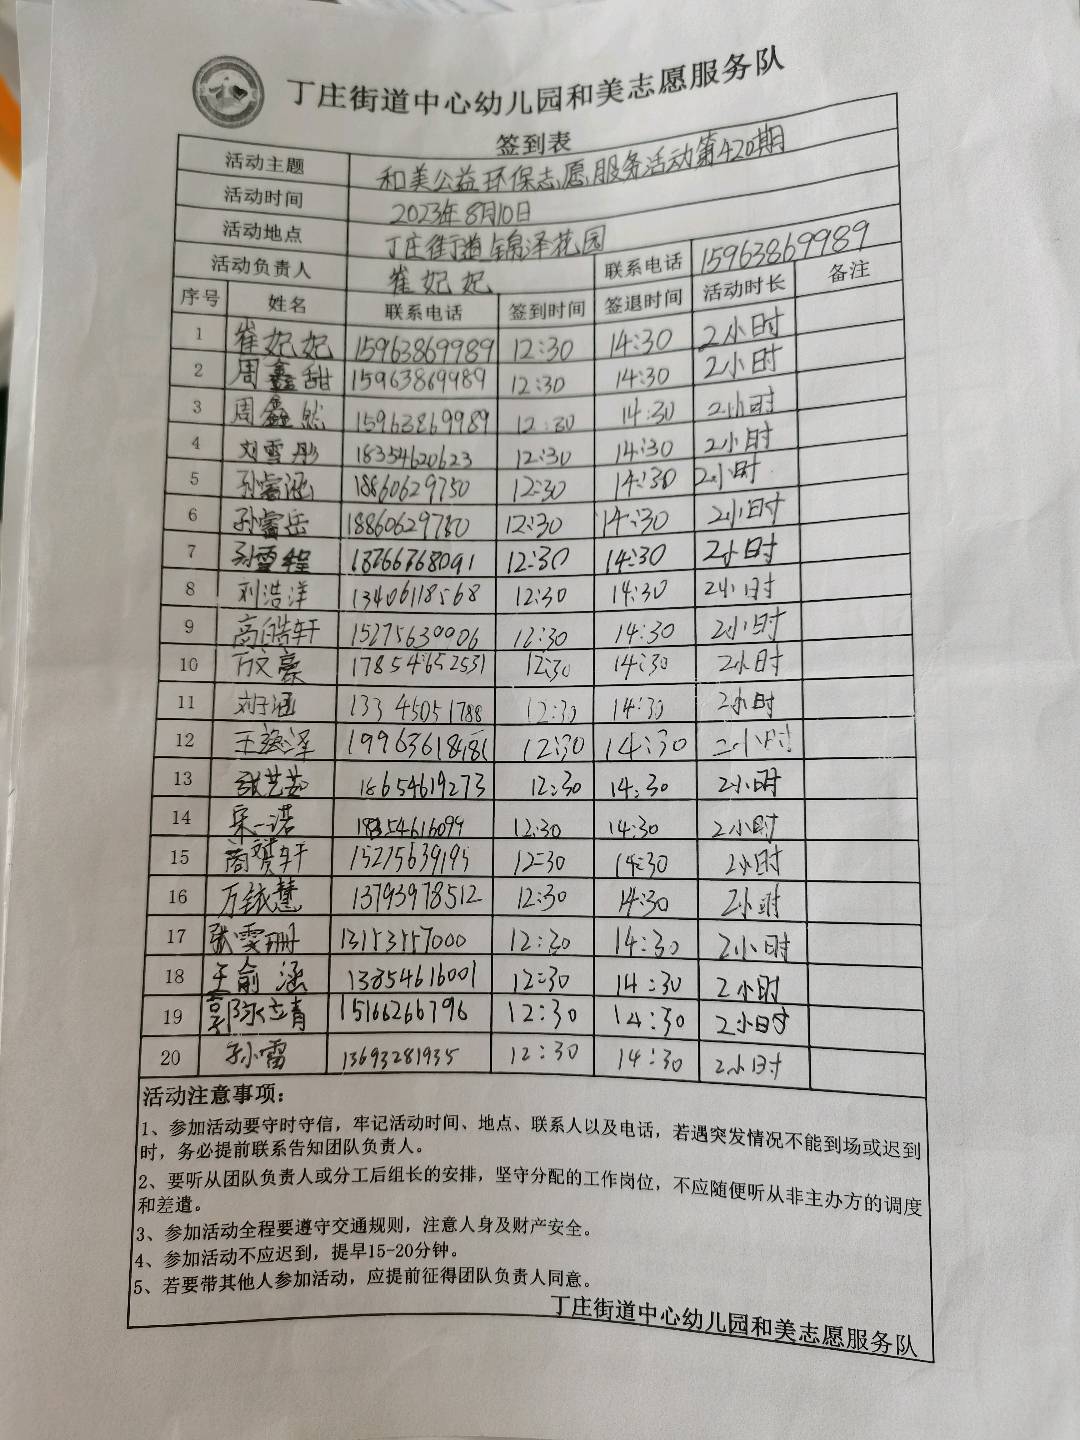 丁庄街道中心幼儿园和美志愿服务队
签到表
活动主题 和美公益环保志愿服务活动第420期
活动时间 2023年8月10日
活动地点 丁庄街道锦泽花园
活动负责人 崔妃妃 联系电话 15963869989
序号 姓名 联系电话 签到时间 签退时间 活动时长 备注
1 崔妃妃 15963869989 12:30 14:30 2小时
2 周鑫甜 15963869989 12:30 14:30 2小时
3 周鑫然 15963869989 12:30 14:30 2小时
4 刘雪彤 18354620623 12:30 14:30 2小时
5 孙睿涵 18860629750 12:30 14:30 2小时
6 孙睿岳 18860629780 12:30 14:30 2小时
7 孙雪程 18766768091 12:30 14:30 2小时
8 刘浩洋 13406118568 12:30 14:30 2小时
9 高皓轩 15275630006 12:30 14:30 2小时
10 文豪 17854652531 12:30 14:30 2小时
11 刘子涵 13345051788 12:30 14:30 2小时
12 王泽 12:30 14:30 2小时
13 张艺 18654619273 12:30 14:30 2小时
14 宋一诺 18354616099 12:30 14:30 2小时
15 轩 15275639195 12:30 14:30 2小时
16 万铱慧 13793978512 12:30 14:30 2小时
17 张雯珊 12:30 14:30 2小时
18 王俞涵 13854616001 12:30 14:30 2小时
19 郭 15166266796 12:30 14:30 2小时
20 孙雷 13693281935 12:30 14:30 2小时
活动注意事项：
1、参加活动要守时守信，牢记活动时间、地点、联系人以及电话，若遇突发情况不能到场或迟到
时，务必提前联系告知团队负责人。
2、要听从团队负责人或分工后组长的安排，坚守分配的工作岗位，不应随便听从非主办方的调度
和差遣。
3、参加活动全程要遵守交通规则，注意人身及财产安全。
4、参加活动不应迟到，提早15-20分钟。
5、若要带其他人参加活动，应提前征得团队负责人同意。
丁庄街道中心幼儿园和美志愿服务队